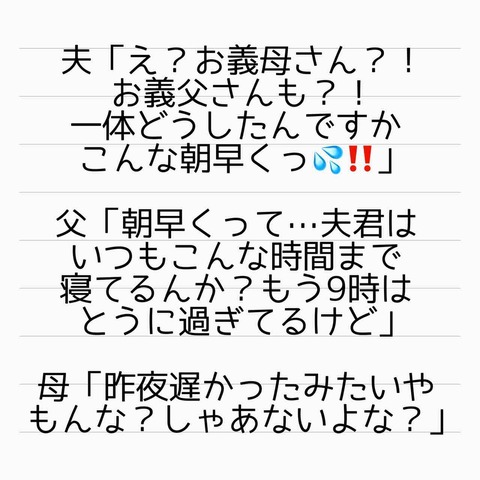 夫「え？お義母さん？！
お義父さんも？！
一体どうしたんですか
こんな朝早くっ💦‼️」
父「朝早くって…夫君は
いつもこんな時間まで
寝てるんか？もう9時は
とうに過ぎてるけど」
母「昨夜遅かったみたいや
もんな？しゃあないよな？」